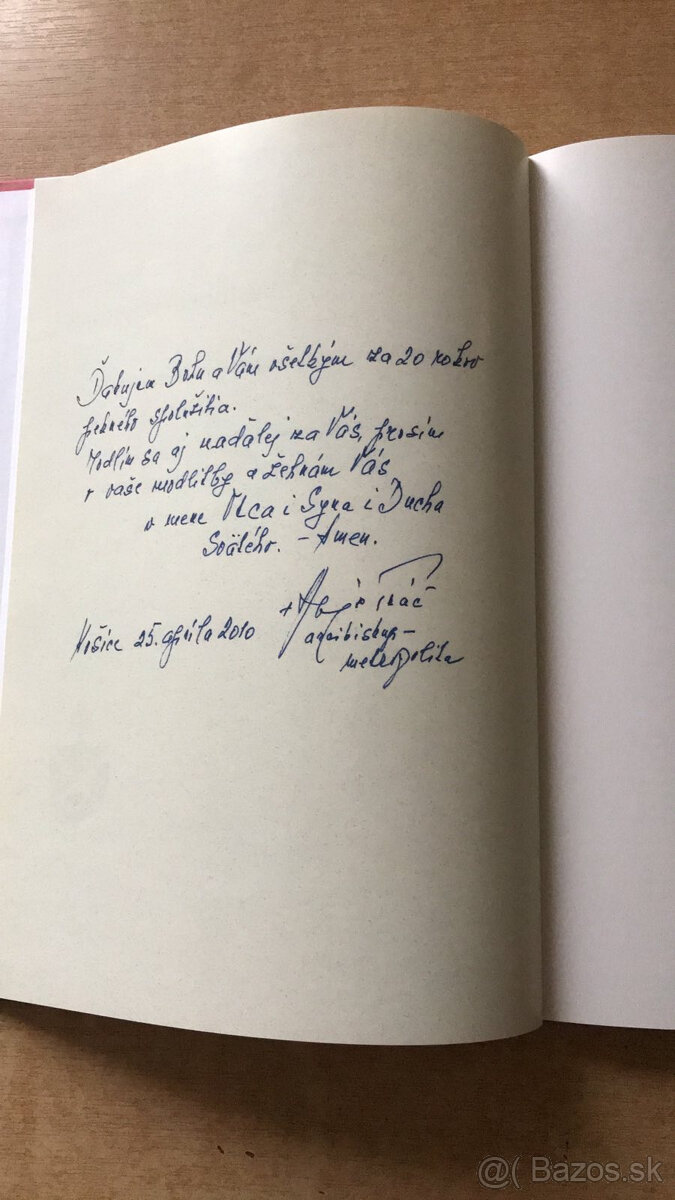 Ďakujem Bohu a Vám všetkým za 20 rokov
pekného spolužitia.
Modlím sa aj naďalej za Vás, prosím
o vaše modlitby a žehnám Vás
v mene Otca i Syna i Ducha
Svätého. - Amen.
+ Alojz Tkáč
Košice 25. apríla 2010
arcibiskup-
metropolita
@( Bazos.sk